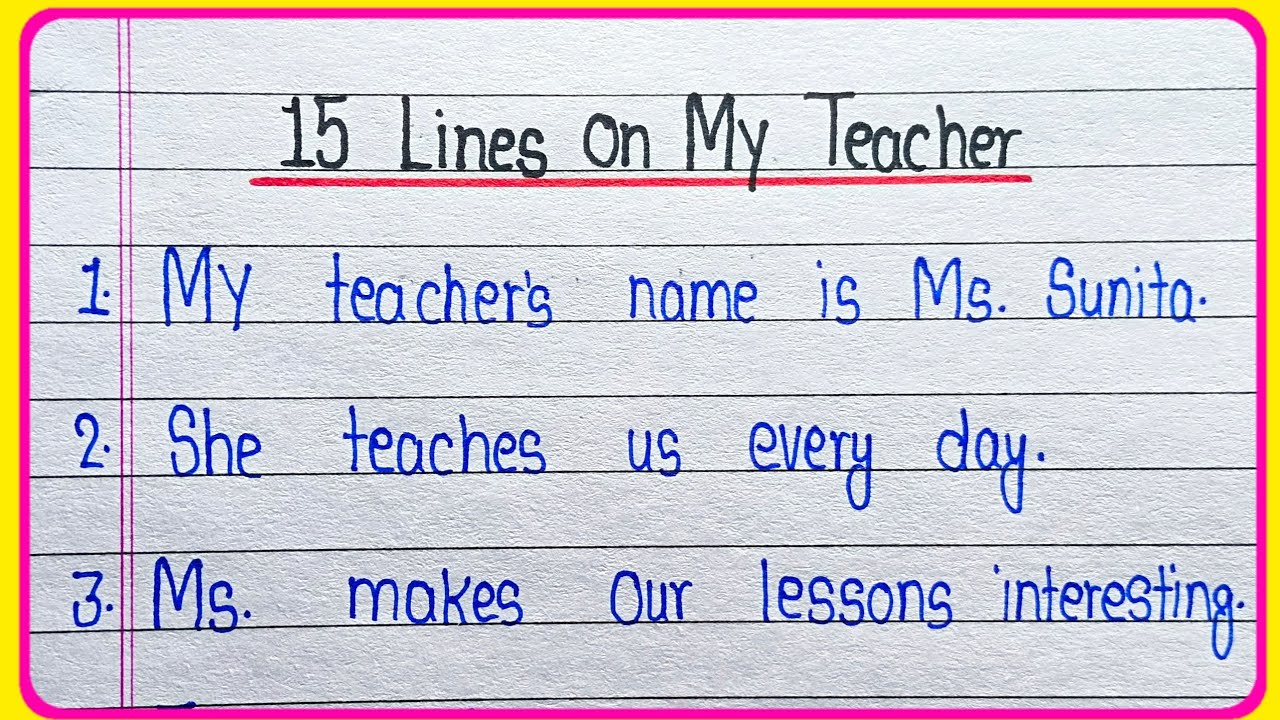 15 Lines on My Teacher
1. My teacher's name is Ms. Sunita.
2. She teaches us every day.
3. Ms. makes our lessons interesting.